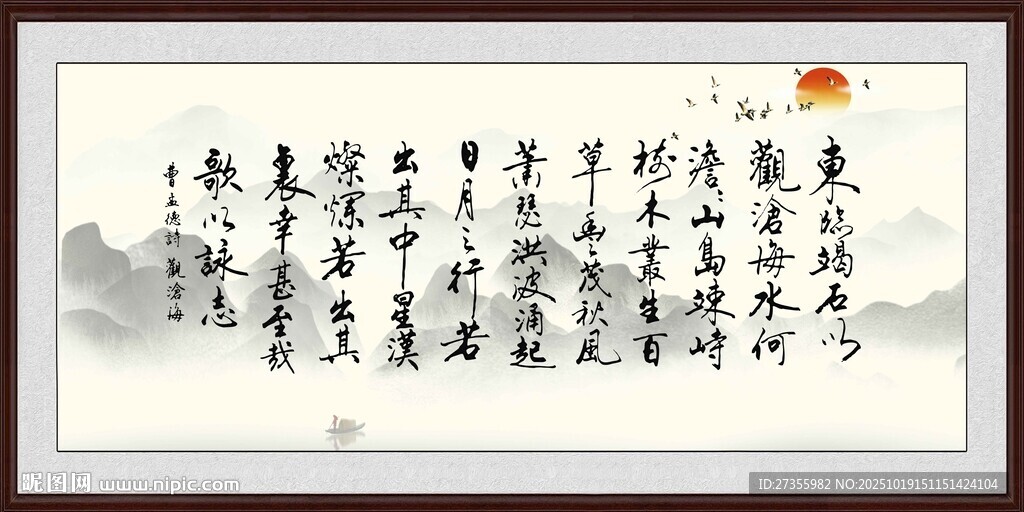 東臨竭石以
觀滄海水何
澹〻山島竦峙
樹木叢生百
草豐茂秋風
蕭瑟洪波涌起
日月之行若
出其中星漢
燦爛若出其
裏幸甚至哉
歌以詠志
曹孟德詩 觀滄海
昵图网 www.nipic.com
ID:27355982 NO:20251019151151424104